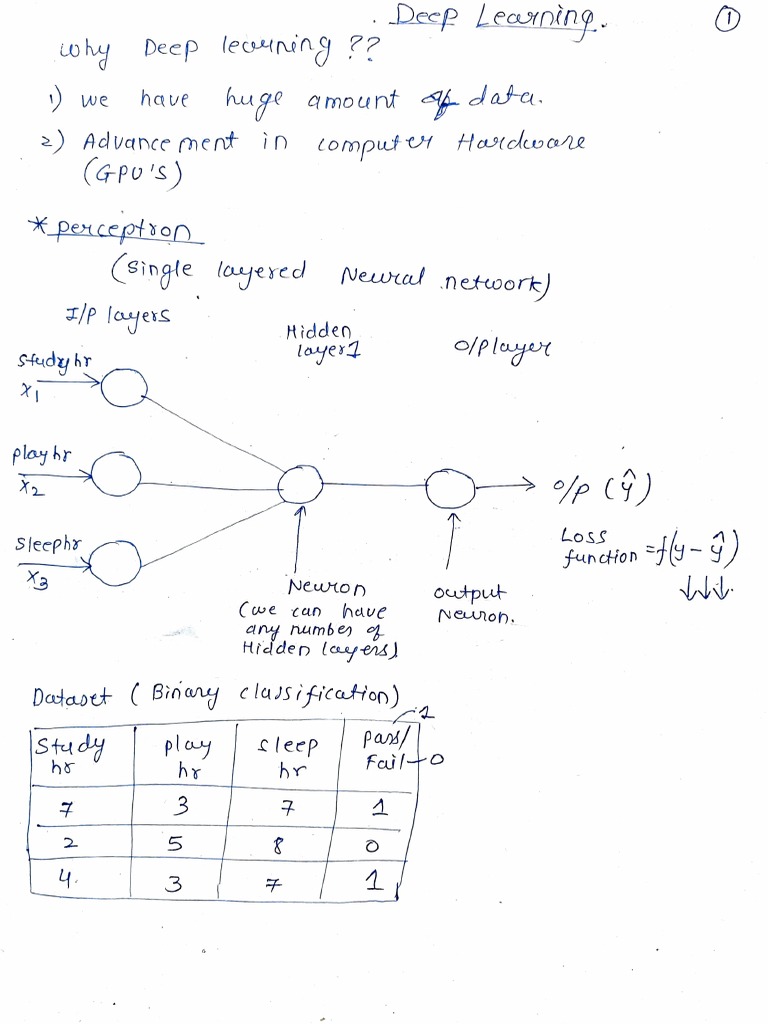 Deep Learning. 1
why Deep learning ??
1) we have huge amount of data.
2) Advancement in computer Hardware
(GPU'S)
* perceptron
(single layered Neural network)
I/P layers
Hidden
layer1
O/P layer
Study hr
x1
play hr
x2
Sleep hr
x3
O/P (ŷ)
Loss
function = f(y - ŷ)
↓↓↓.
Neuron
(we can have
any number of
Hidden layers)
output
Neuron.
Dataset (Binary classification)
Study hr | play hr | sleep hr | Pass/ - 1 Fail - 0
7 | 3 | 7 | 1
2 | 5 | 8 | 0
4. | 3 | 7 | 1